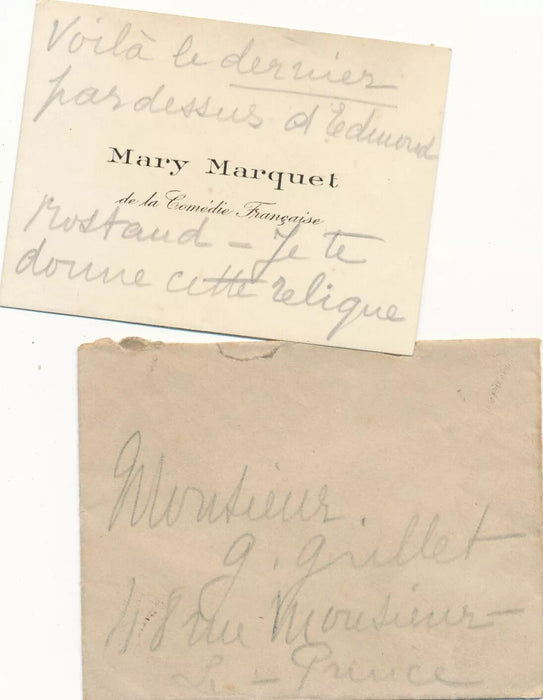 Voilà le dernier
pardessus d'Edmond
Mary Marquet
de la Comédie Française
Rostand - Je te
donne cette relique
Monsieur
G. Grillet
48 rue Monsieur-
Le - Prince